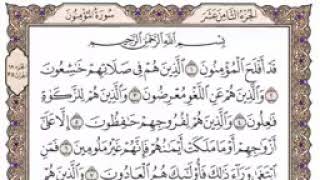 الجزء الثامن عشر
سورة المؤمنون
بسم الله الرحمن الرحيم
قَدْ أَفْلَحَ الْمُؤْمِنُونَ ١ الَّذِينَ هُمْ فِي صَلَاتِهِمْ خَاشِعُونَ
٢ وَالَّذِينَ هُمْ عَنِ اللَّغْوِ مُعْرِضُونَ ٣ وَالَّذِينَ هُمْ لِلزَّكَاةِ
فَاعِلُونَ ٤ وَالَّذِينَ هُمْ لِفُرُوجِهِمْ حَافِظُونَ ٥ إِلَّا عَلَىٰ
أَزْوَاجِهِمْ أَوْ مَا مَلَكَتْ أَيْمَانُهُمْ فَإِنَّهُمْ غَيْرُ مَلُومِينَ ٦ فَمَنِ
ابْتَغَىٰ وَرَاءَ ذَٰلِكَ فَأُولَٰئِكَ هُمُ الْعَادُونَ ٧ وَالَّذِينَ هُمْ